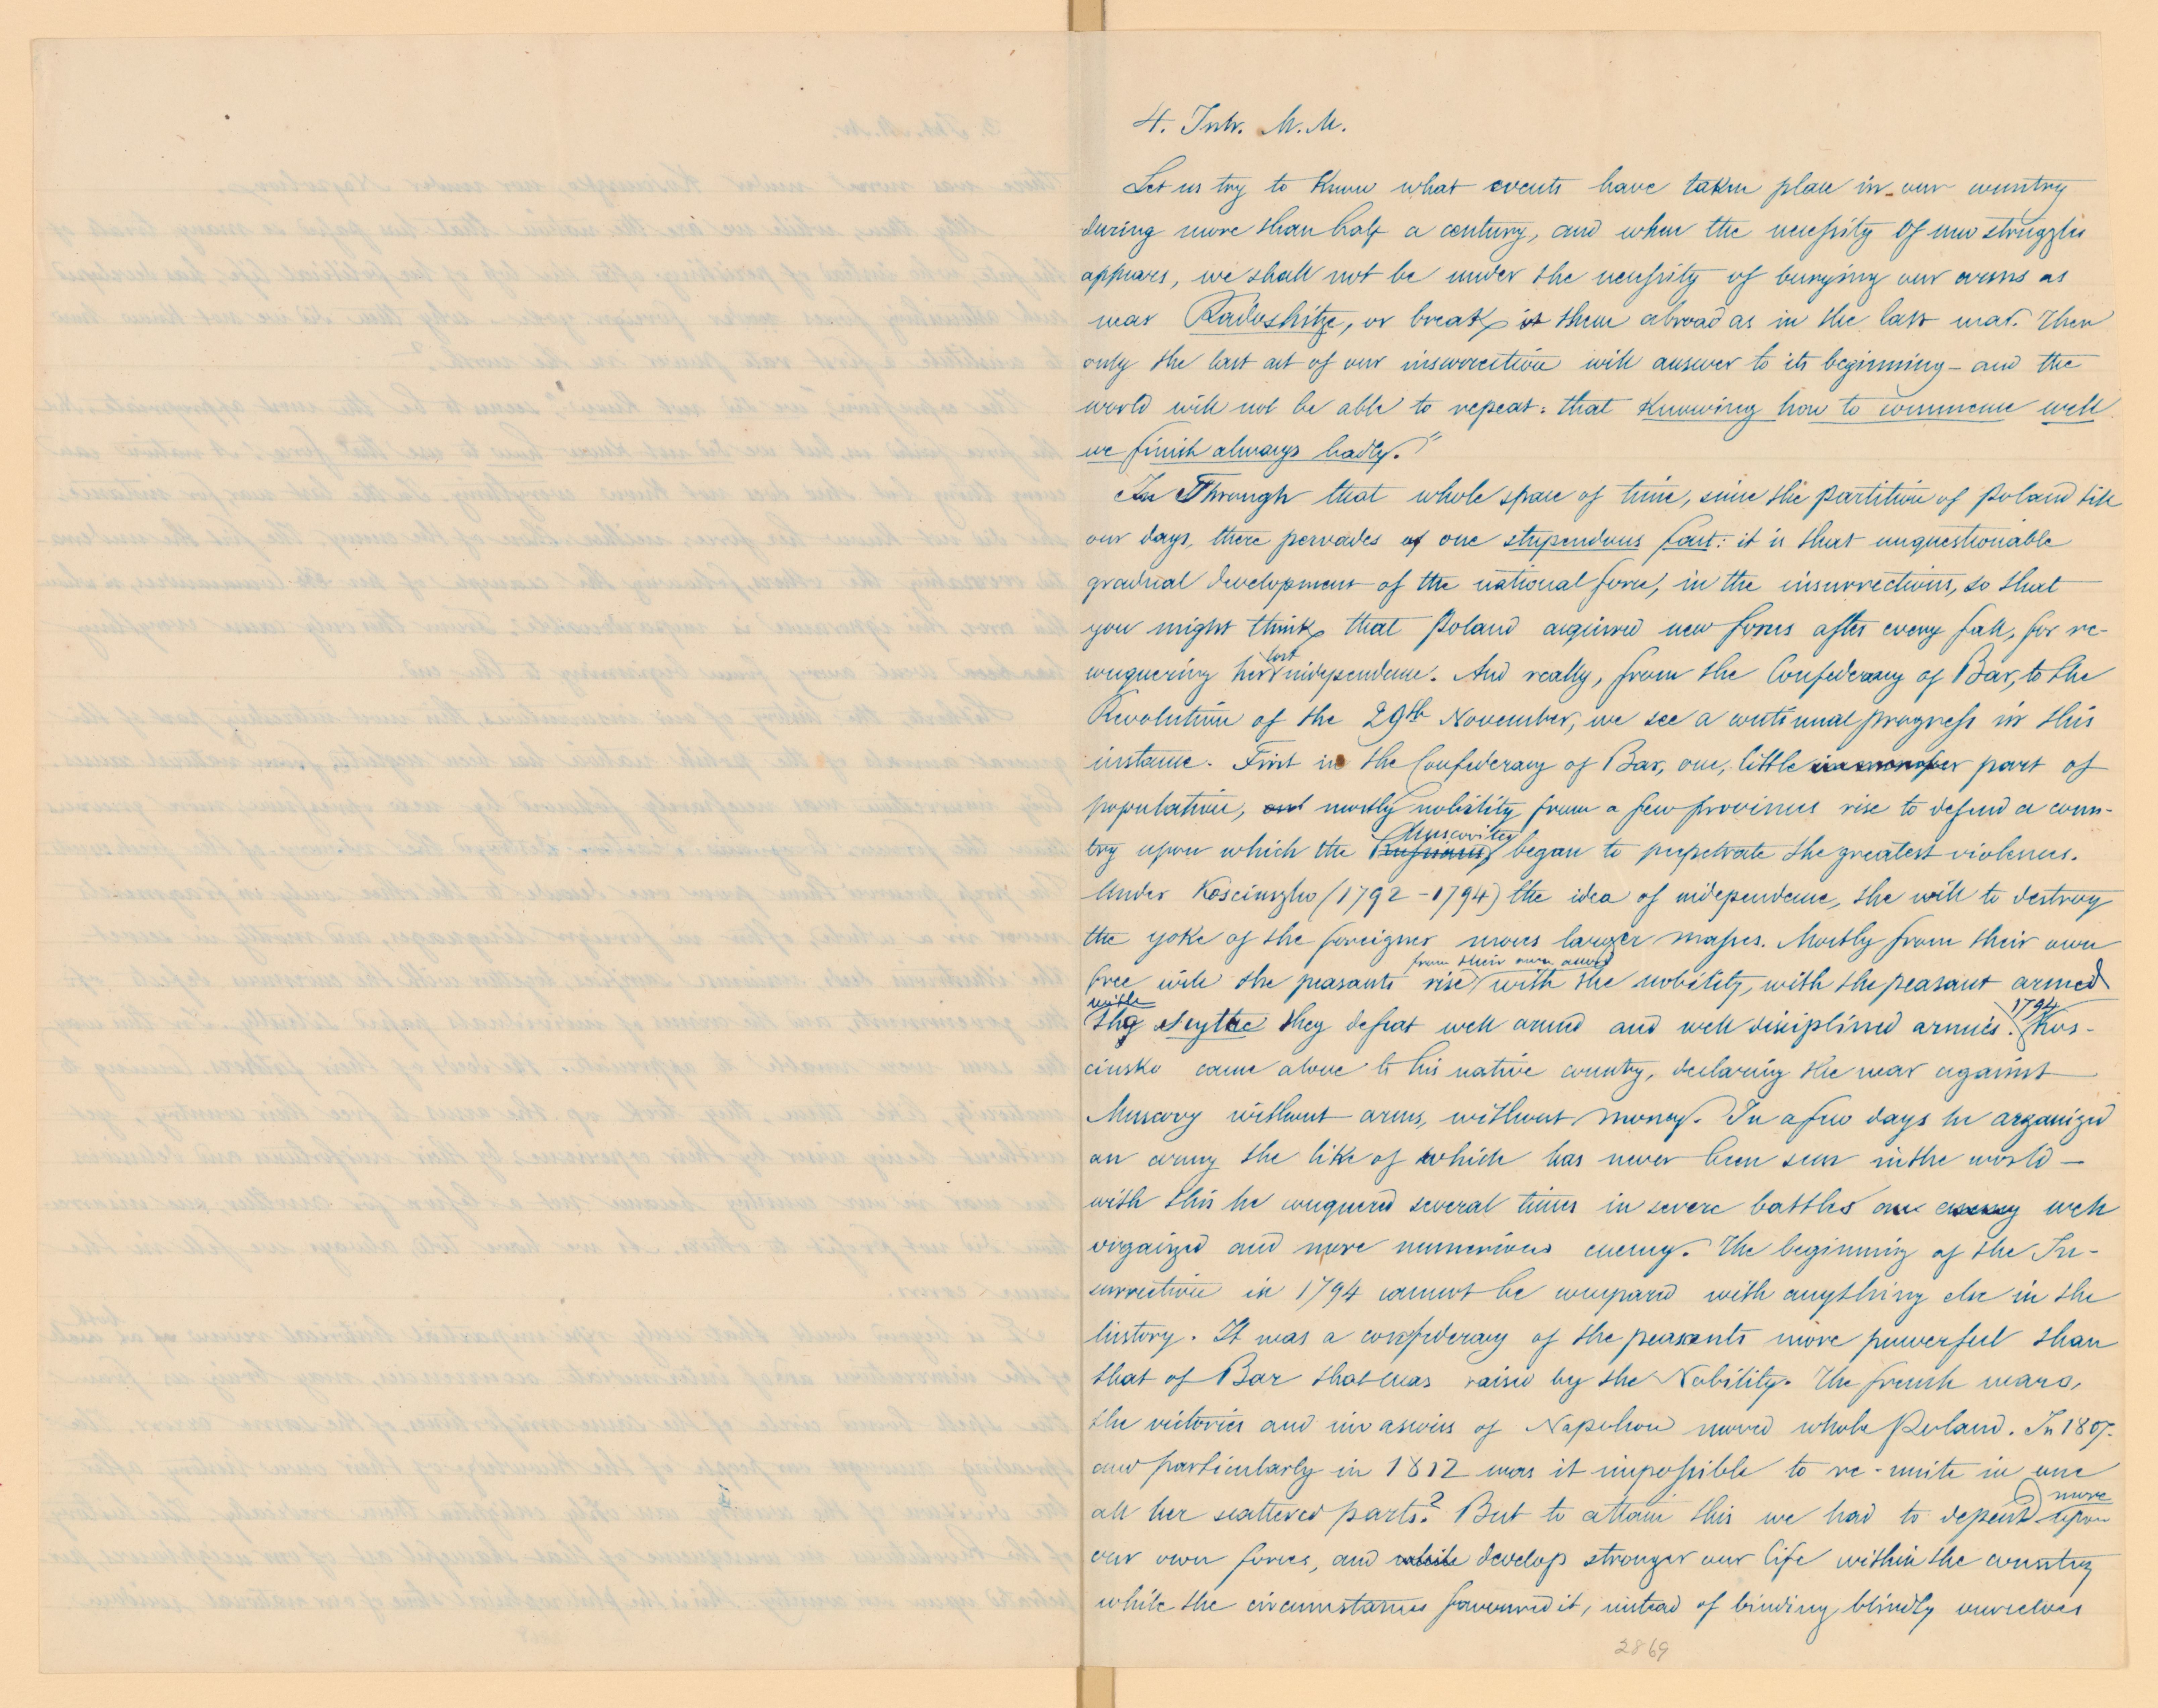 4. Intr. M.M.
Let us try to know what events have taken place in our country
during more than half a century, and when the necessity of new struggles
appears, we shall not be under the necessity of burying our arms as
near Radoshitze, or break them abroad as in the last war. Then
only the last act of our insurrection will answer to its beginning – and the
world will not be able to repeat: that knowing how to commence well
we finish always badly."
Through that whole space of time, since the partition of Poland till
our days, there pervades one stupendous fact: it is that unquestionable
gradual development of the national force, in the insurrections, so that
you might think that Poland acquired new forces after every fall, for re-
conquering her lost independence. And really, from the Confederacy of Bar, to the
Revolution of the 29th November, we see a continual progress in this
instance. First in the Confederacy of Bar, one, little part of
population, mostly nobility from a few provinces rise to defend a coun-
try upon which the Russians Muscovites began to perpetrate the greatest violences.
Under Kosciuszko (1792 – 1794) the idea of independence, the will to destroy
the yoke of the foreigner moves larger masses. Mostly from their own
free will the peasants rise from their own accord with the nobility, with the peasant armed
with the scythe they defeat well armed and well disciplined armies. 1794 Kos-
ciusko came alone to his native country, declaring the war against
Muscovy without arms, without money. In a few days he organized
an army the like of which has never been seen in the world –
with this he conquered several times in severe battles an well
orgaized and more numerious enemy. The beginning of the In-
surrection in 1794 cannot be compared with anything else in the
history. It was a confederacy of the peasants more powerful than
that of Bar that was raised by the Nobility. The french wars,
the victories and invasions of Napoleon moved whole Poland. In 1807.
and particularly in 1812 was it impossible to re-unite in one
all her scattered parts? But to attain this we had to depend more upon
our own forces, and while develop stronger our life within the country
while the circumstances favoured it, instead of binding blindly ourselves
2869